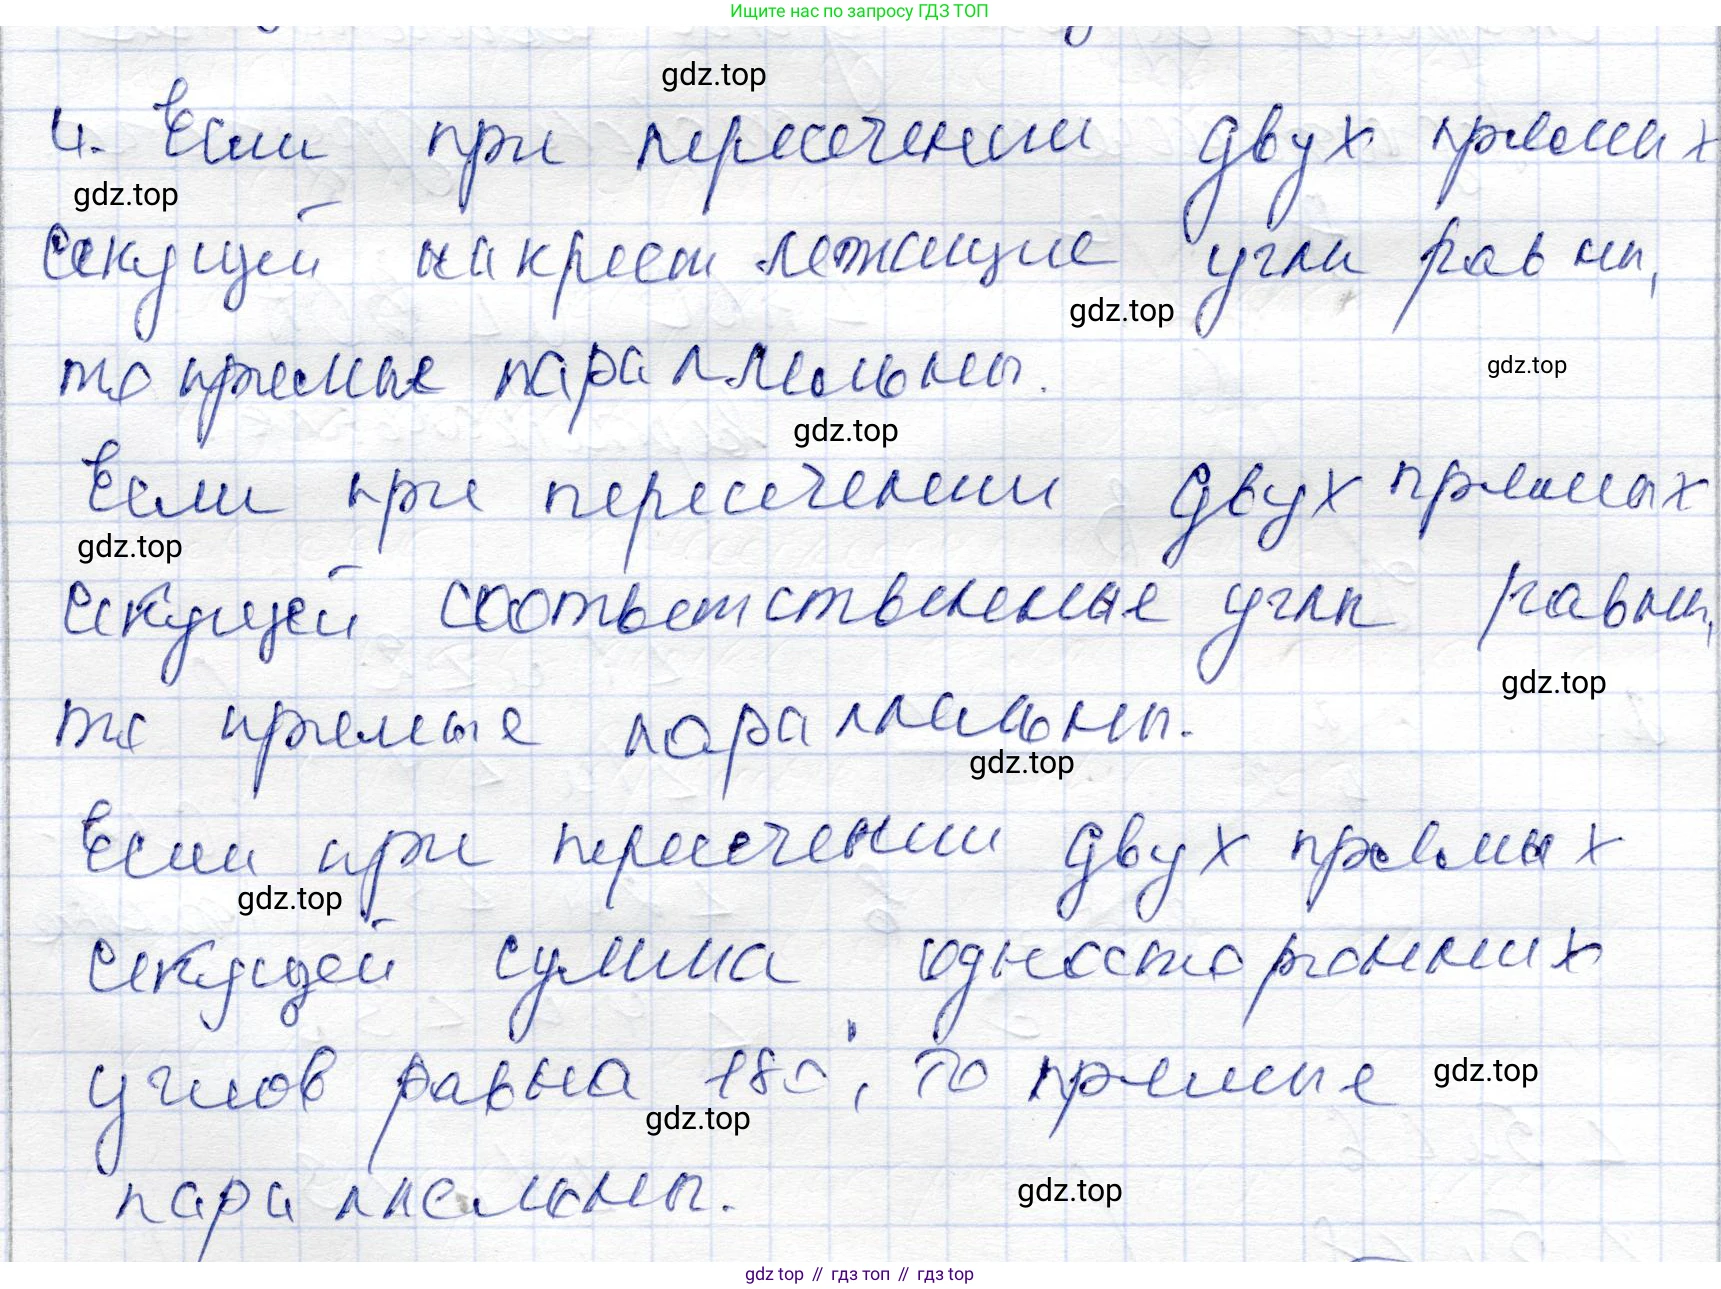 Ищите нас по запросу ГДЗ ТОП
gdz.top
4. Если при пересечении двух прямых
gdz.top
секущей накрест лежащие углы равны,
gdz.top
то прямые параллельны.
gdz.top
gdz.top
Если при пересечении двух прямых
gdz.top
секущей соответственные углы равны,
gdz.top
то прямые параллельны.
gdz.top
Если при пересечении двух прямых
gdz.top
секущей сумма односторонних
углов равна 180°, то прямые
gdz.top
gdz.top
параллельны.
gdz.top
gdz top // гдз топ // гдз top